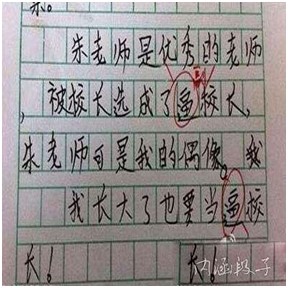 朱老师是优秀的老师
,被校长选成了逼校长,
朱老师可是我的偶像。我
我长大了也要当逼校
长!
长!
内涵段子